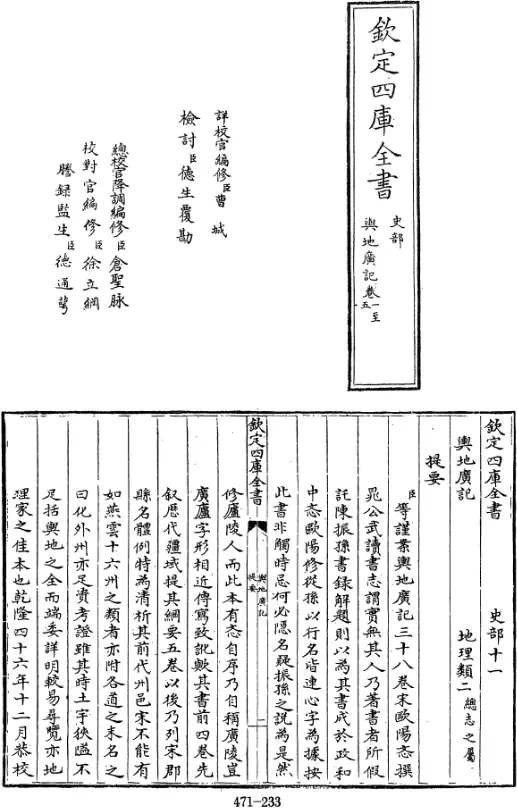 欽定四庫全書
史部
輿地廣記卷一至五
詳校官編修臣曹城
檢討臣德生覆勘
總校官降調編修臣倉聖脉
校對官編修臣徐立綱
謄錄監生臣德通
欽定四庫全書
史部十一
輿地廣記
地理類二總志之屬
提要
臣等謹案輿地廣記三十八卷宋歐陽忞撰
晁公武讀書志謂實無其人乃著書者所假
託陳振孫書錄解題則以為其書成於政和
中忞歐陽修從孫以行名皆連心字為據按
此書非觸時忌何必隱名疑振孫之說為是然
欽定四庫全書
輿地廣記
提要
二
修廬陵人而此本有忞自序乃自稱廣陵豈
廣廬字形相近傳寫致訛歟其書前四卷先
叙歷代疆域提其綱要五卷以後乃列宋郡
縣名體例特為清析其前代州邑宋不能有
如燕雲十六州之類者亦附各道之末名之
曰化外州亦足資考證雖其時土宇狹隘不
足括輿地之全而端委詳明較易尋覽亦地
理家之佳本也乾隆四十六年十二月恭校
471-233